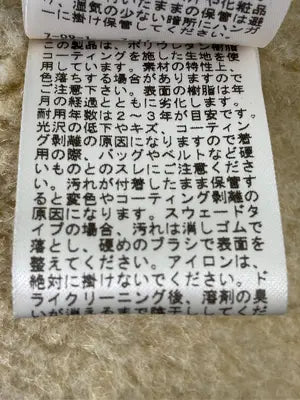 や化粧品
いたままの保管は避
け、湿気の少ない暗所にハンガ
ーに掛け保管してください。
この製品は、ポリウレタン樹脂
コーティングを施した生地を使
用しています。素材の特性上、
色落ちする場合がありますので
ご注意下さい。表面の樹脂は年
月の経過とともに劣化します。
耐用年数は2～3年が目安です。
光沢の低下やキズ、コーティン
グ剥離の原因になりますので着
用の際、バッグやベルトなど硬
いものとのスレにご注意くださ
い。汚れが付着したまま保管す
ると変色やコーティング剥離の
原因になります。スウェードタ
イプの場合、汚れは消しゴムで
落とし、硬めのブラシで表面を
整えてください。アイロンは、
絶対に掛けないでください。ド
ライクリーニング後、溶剤の臭
いが消えるまで陰干ししてくだ